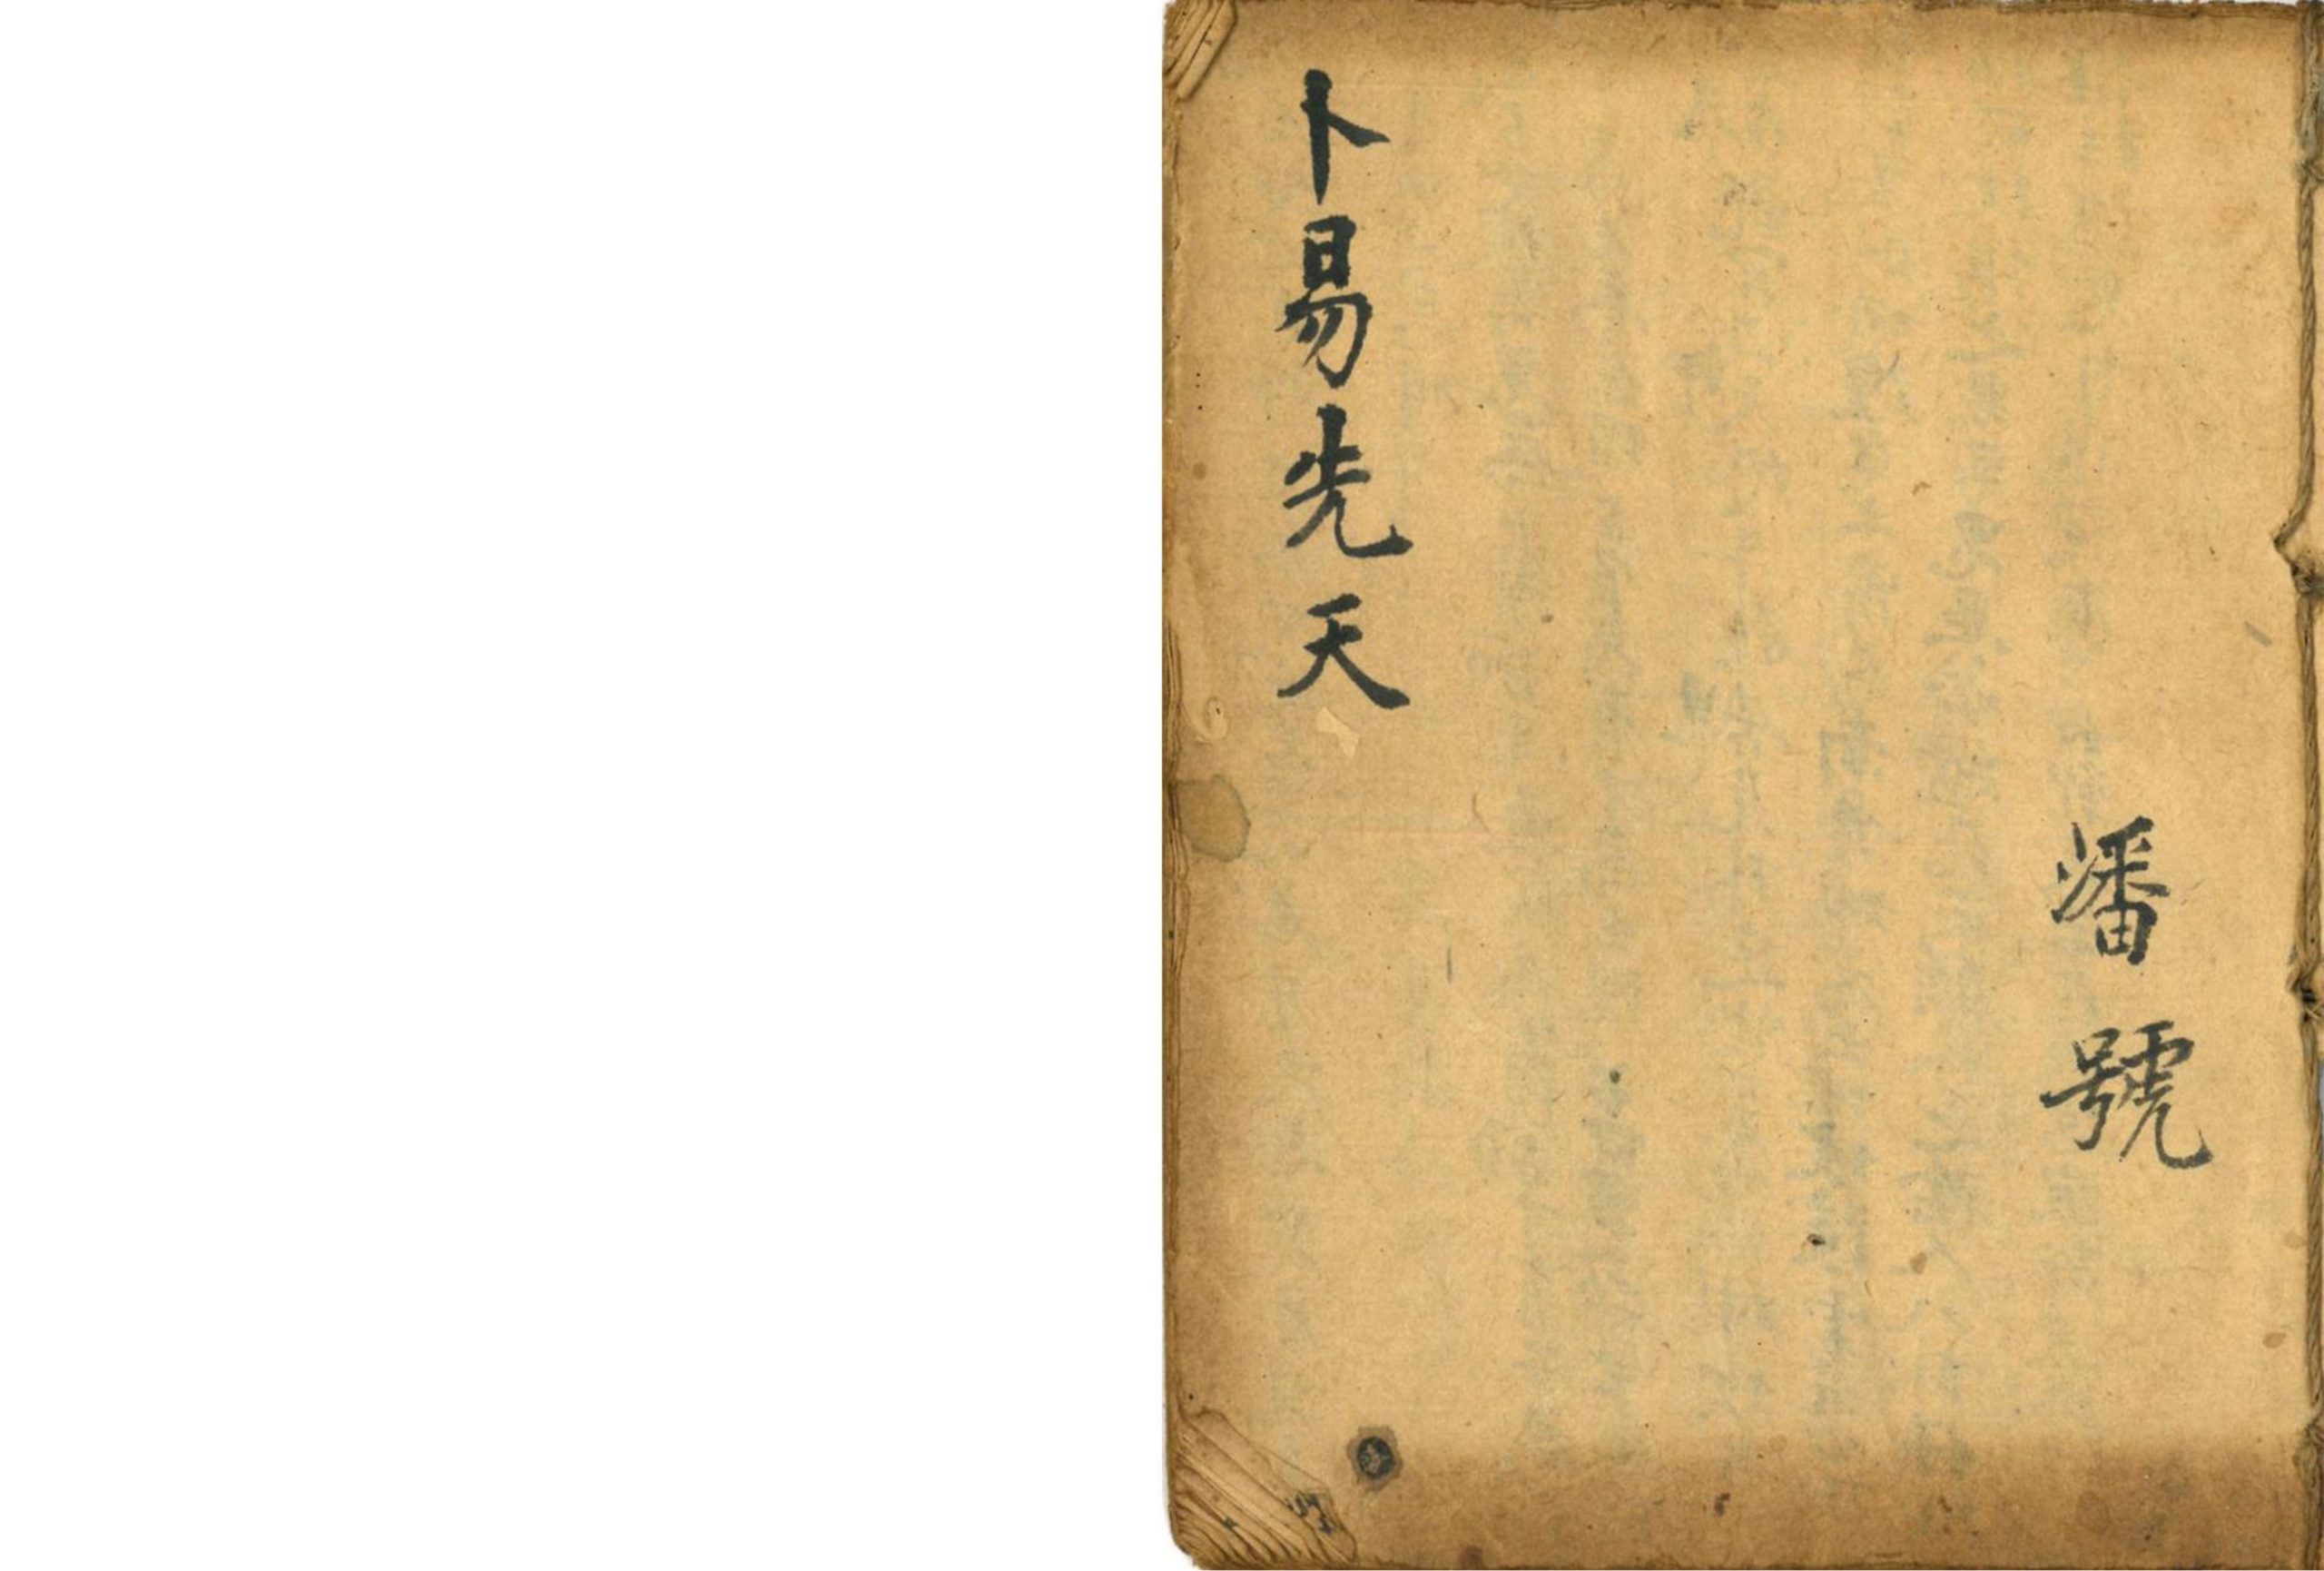 潘號
卜易先天